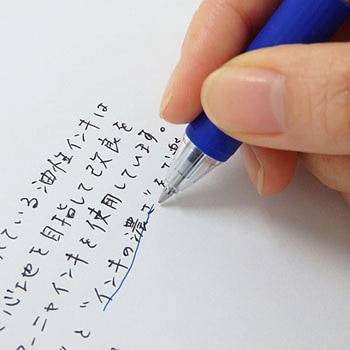 ている油性インキは
心地を目指して改良を
ーニャインキを使用しています。
と "インキの濃